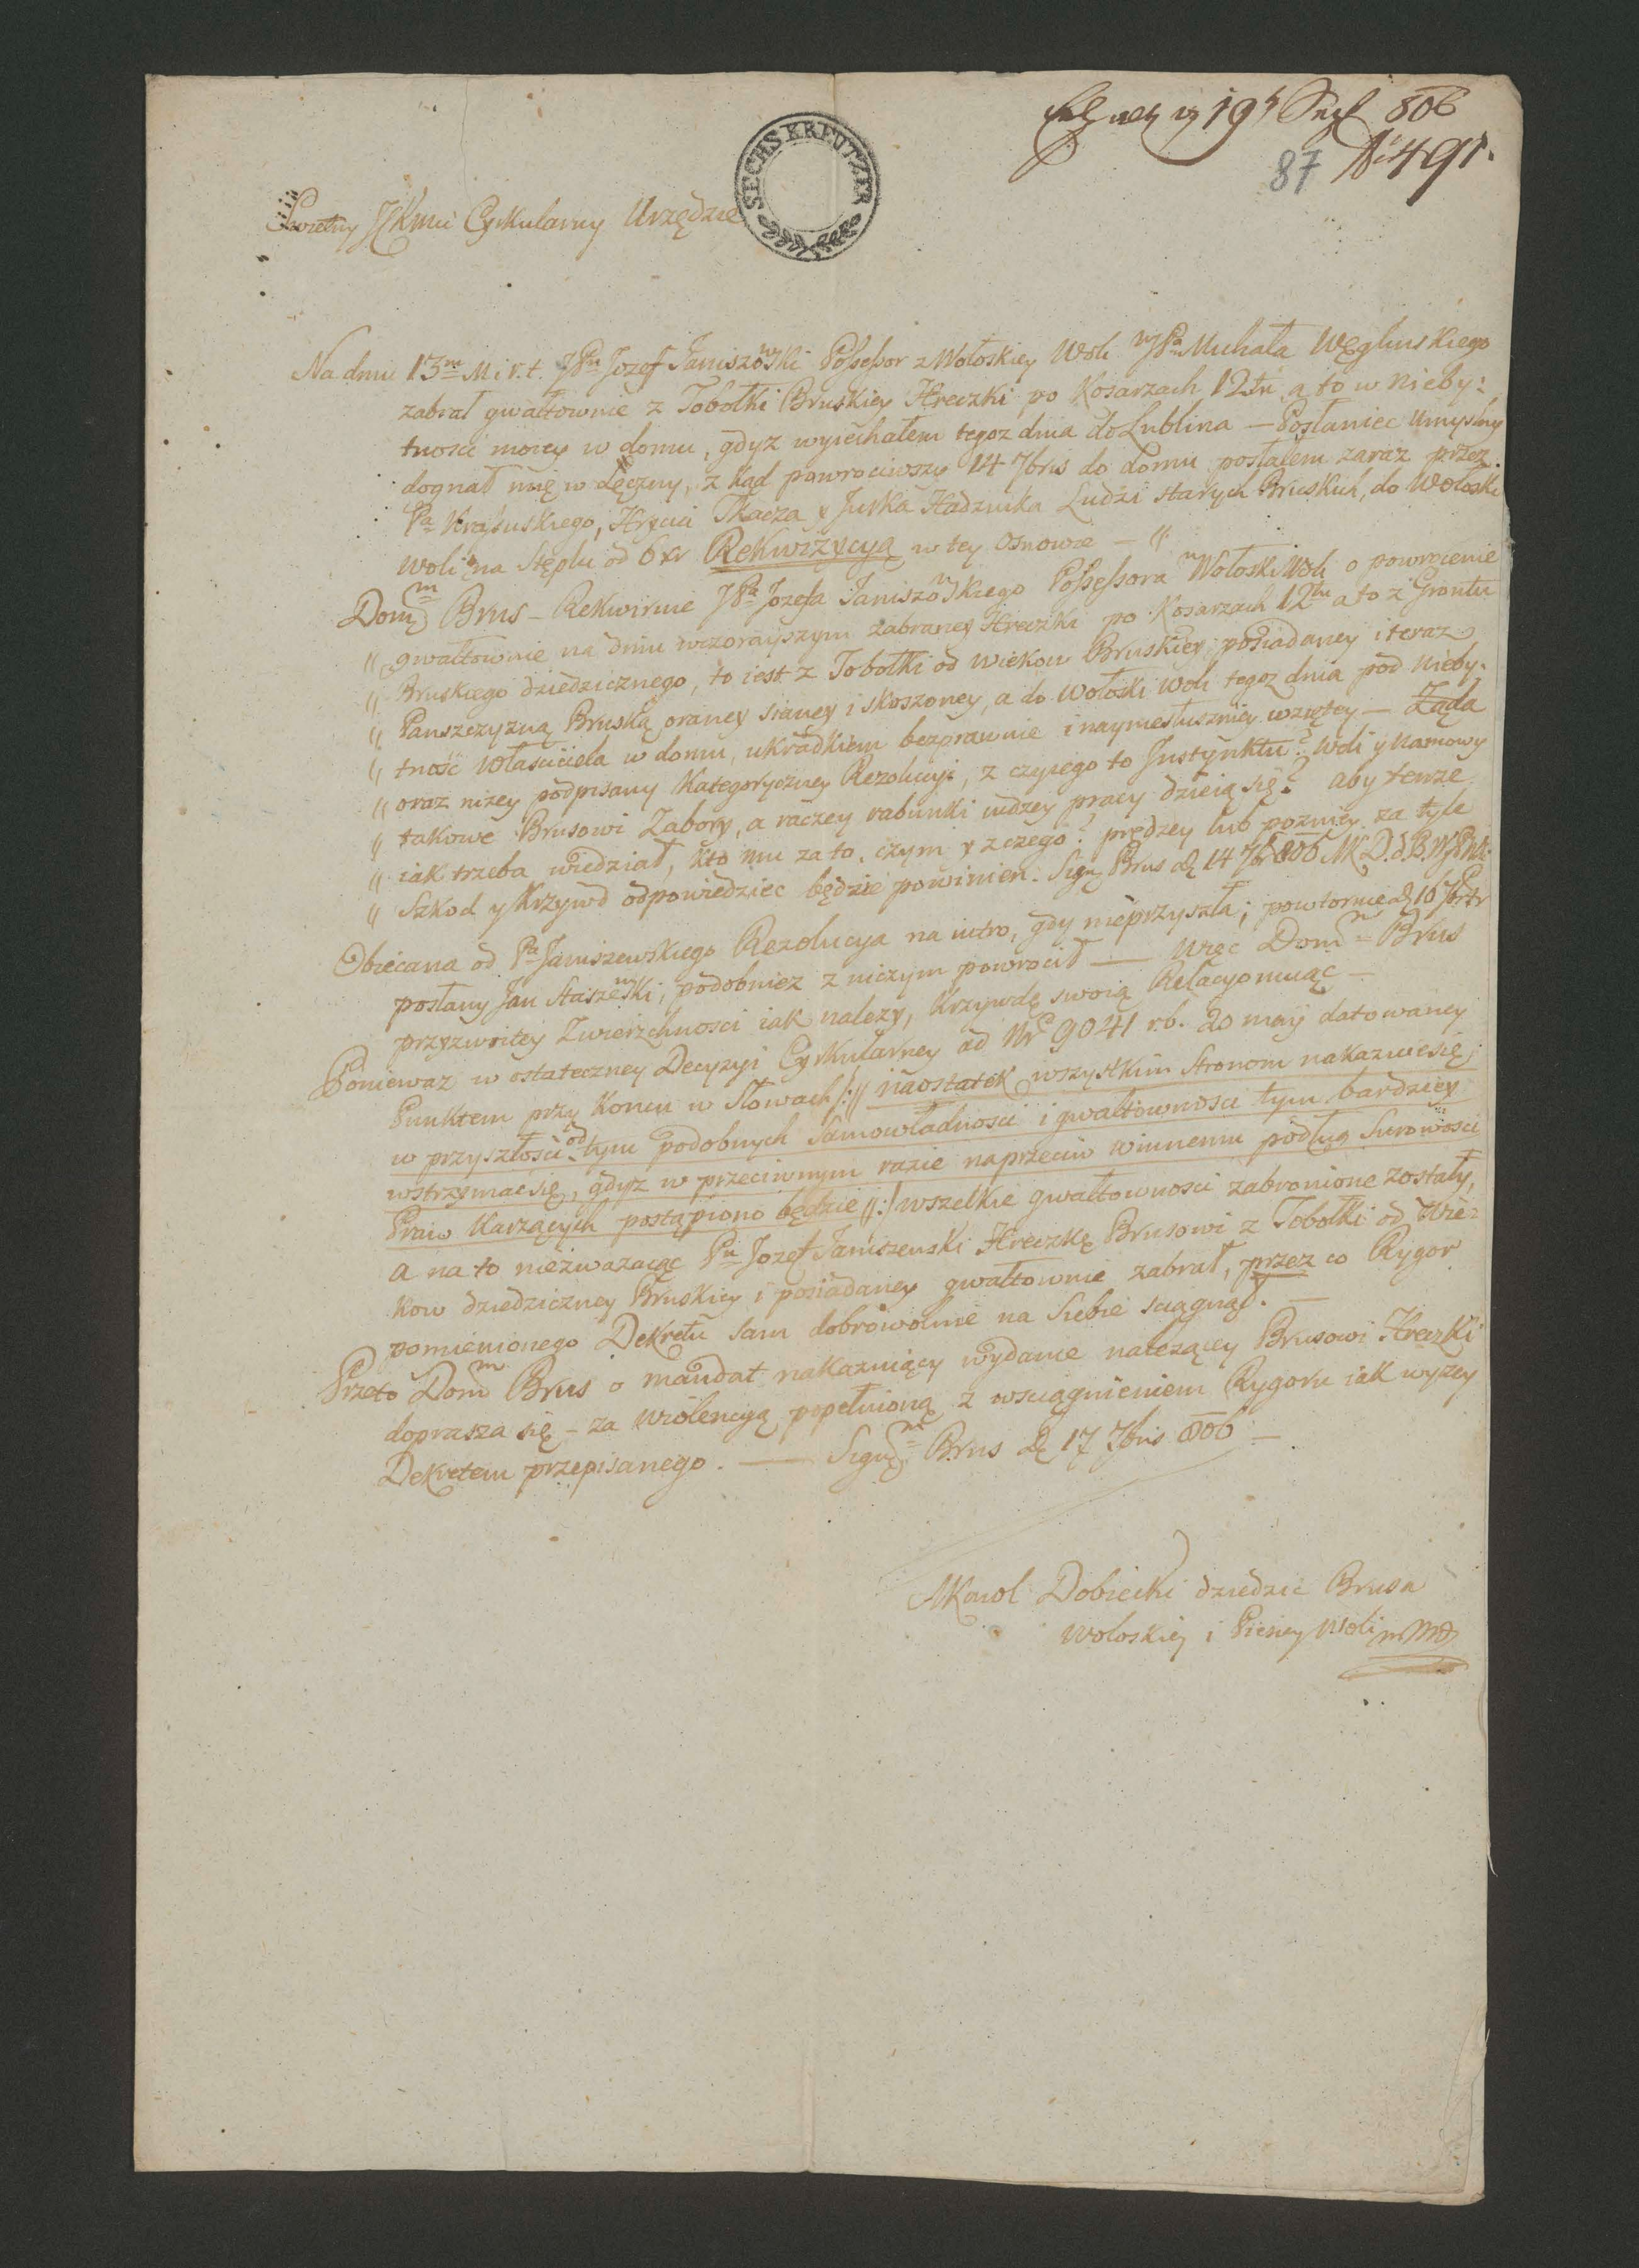 19 806
87 № 491.
SECHS KREUTZER
Swietny JKMci Cyrkularny Urzędzie
Na dniu 13m M i r. t. JPn Jozef Janiszowski Possessor z Wołoskiey Woli WJPa Michała Węglinskiego
zabrał gwałtownie z Tobołki Bruskiey Hreczki po Kosarzach 12tu a to w nieby:
tnosci moiey w domu, gdyz wyiechałem tegoz dnia do Lublina — Posłaniec Umyslny
dognał mię w Łęczny, z kąd powrociwszy 14 7bris do domu posłałem zaraz przez
Pa Hrycia Tkacza y Jurka Hadzuika Ludzi starych Bruskich, do Wołoski
Woli na Stęplu od 6 xr Rekwizycyą w tey Osnowie — "
Domm Brus – Rekwiruie JPa Jozefa Janiszowskiego Possessora Wołoski Woli o powrocenie
" gwałtownie na dniu wczorayszym zabraney Hreczki po Kosarzach 12tu a to z Gruntu
" Bruskiego dziedzicznego, to iest z Tobołki od wiekow Bruskiey posiadaney i teraz
" Panszczyzną Bruską oraney sianey i skoszoney, a do Wołoski Woli tegoz dnia pod nieby-
" tność własciciela w domu, ukradkiem bezprawnie i naymesłuszniey wziętey — Ząda
" oraz nizey podpisany Kategoryczney Rezolucyi, z czyiego to Instynktu? Woli y Namowy
" takowe Brusowi Zabory, a raczey rabunki cudzey pracy dzieią się? aby tenze
" iak trzeba wiedział, kto mu za to, czym y z czego? prędzey lub pozniey za tyle
" Szkod y Krzywd odpowiedziec będzie powinien. Sign Brus d 14 7br 806 MK D. d. B. W
Obiecana od Pa Janiszewskiego Rezolucya na iutro, gdy nieprzyszła; powtornie d 16 7br
posłany Jan Staszewski, podobniez z niczym powrocił — Więc Domm Brus
przyzwoitey Zwierzchnosci iak nalezy, Krzywdę swoią Relacyonuiąc —
Poniewaz w ostateczney Decyzyi Cyrkularney ad Nr 9041 r. b. 20 maij datowaney
Punktem przy Koncu w Słowach /:// naostatek wszystkim Stronom nakazuie się,
w przyszłosci od tym podobnych Samowładnosci i gwałtownosci tym bardziey
wstrzymac się, gdyz w przeciwnym razie naprzeciw winnemu podług Surowosci
Praw Karzących postąpiono będzie //:/ wszelkie gwałtownosci zabronione zostały,
a na to niezwazaiąc Pn Jozef Janiszewski Hreczkę Brusowi z Tobołki od Wie:
kow dziedziczney Bruskiey i posiadaney gwałtownie zabrał, przez co Rygor
pomienionego Dekretu sam dobrowolnie na Siebie sciągnął. —
Przeto Domm Brus o mandat nakazuiący wydanie nalezącey Brusowi Hreczki
doprasza się – za wiolencyą popełnioną z wsciągnieniem Rygoru iak wyzey
Dekretem przepisanego. — Signm Brus d 17 7bris 806 —
MKarol Dobiecki dziedzic Brusa
Wołoskiey i Pieney Woli mp